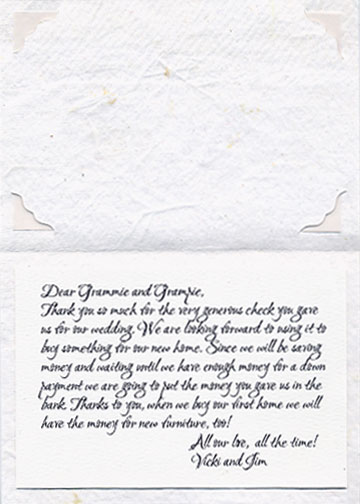 Dear Grammie and Grampie,
Thank you so much for the very generous check you gave
us for our wedding. We are looking forward to using it to
buy something for our new home. Since we will be saving
money and waiting until we have enough money for a down
payment we are going to put the money you gave us in the
bank. Thanks to you, when we buy our first home we will
have the money for new furniture, too!
All our love, all the time!
Vicki and Jim